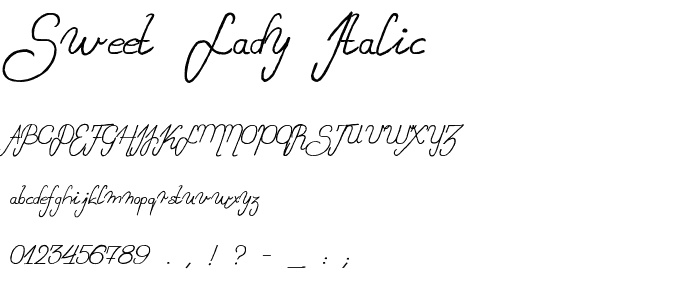 Sweet Lady Italic
ABCDEFGHIJKLMNOPQRSTUVWXYZ
abcdefghijklmnopqrstuvwxyz
0123456789 . , ! ? - _ : ;